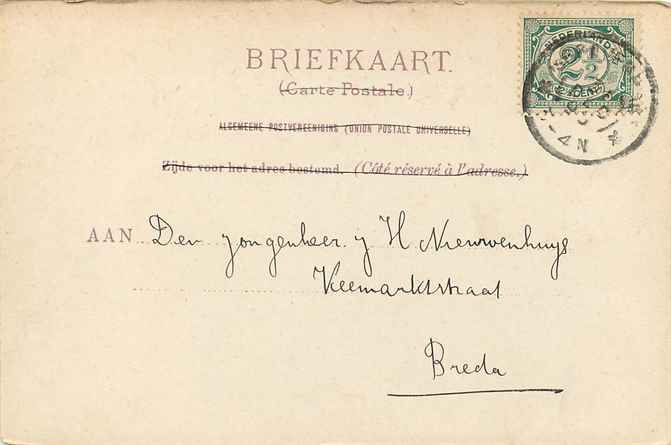 BRIEFKAART.
(Carte Postale.)
ALGEMEENE POSTVEREENIGING (UNION POSTALE UNIVERSELLE)
Zijde voor het adres bestemd. (Côté réservé à l'adresse.)
NEDERLAND
2½
4N
AAN Den jongenheer J H Nieuwenhuys
Veemarktstraat
Breda